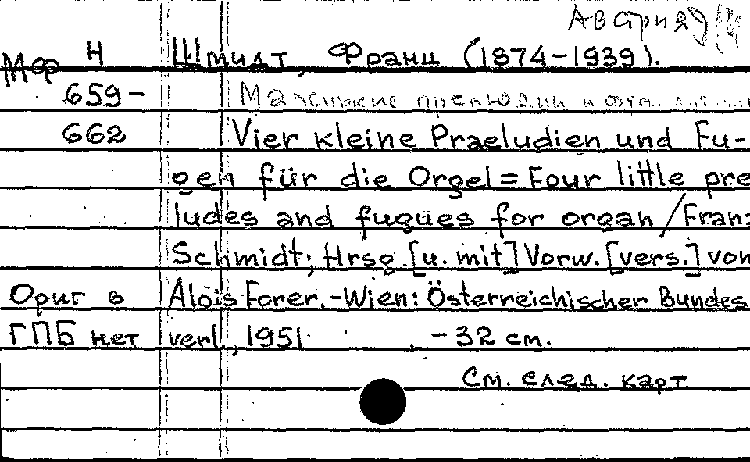 Австрия
Мф Н Шмидт, Франц (1874-1939).
659-
662 Vier kleine Praeludien und Fu-
gen für die Orgel = Four little pre
ludes and fugues for organ / Fran
Schmidt; Hrsg. [u. mit] Vorw. [vers.] von
Ориг в Alois Forer. - Wien: Österreichischer Bundes
ГПБ нет verl., 1951 - 32 cm.
См. след. карт